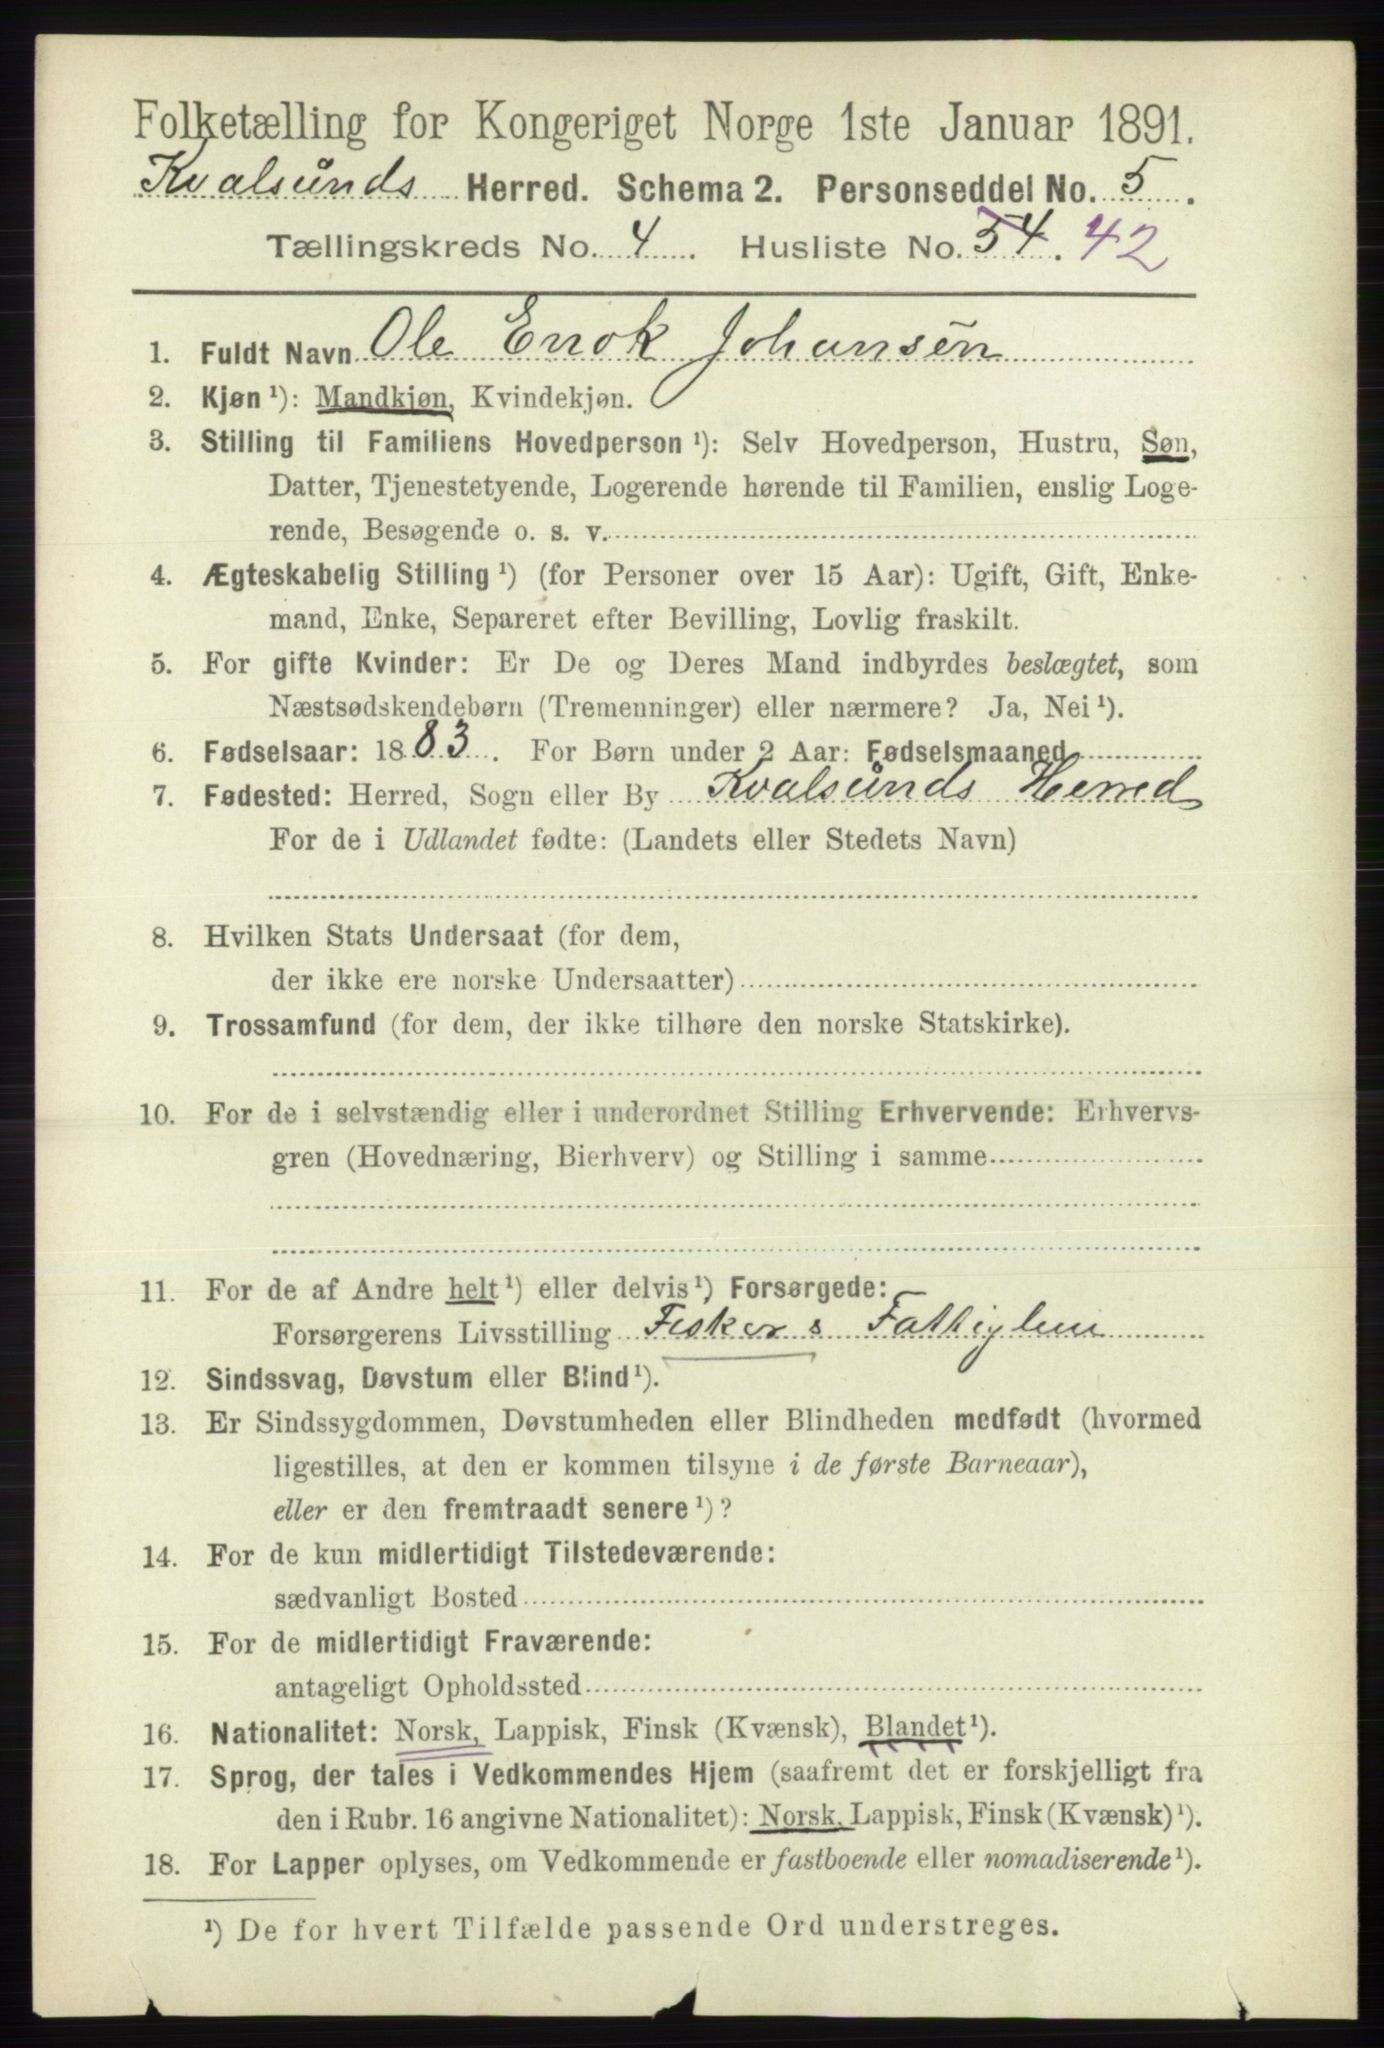 Folketælling for Kongeriget Norge 1ste Januar 1891.
Kvalsunds Herred. Schema 2. Personseddel No. 5.
Tællingskreds No. 4. Husliste No. 54. 42
1. Fuldt Navn Ole Enok Johansen
2. Kjøn ¹): Mandkjøn, Kvindekjøn.
3. Stilling til Familiens Hovedperson ¹): Selv Hovedperson, Hustru, Søn,
Datter, Tjenestetyende, Logerende hørende til Familien, enslig Loge-
rende, Besøgende o. s. v.
4. Ægteskabelig Stilling ¹) (for Personer over 15 Aar): Ugift, Gift, Enke-
mand, Enke, Separeret efter Bevilling, Lovlig fraskilt.
5. For gifte Kvinder: Er De og Deres Mand indbyrdes beslægtet, som
Næstsødskendebørn (Tremenninger) eller nærmere? Ja, Nei ¹).
6. Fødselsaar: 1883. For Børn under 2 Aar: Fødselsmaaned
7. Fødested: Herred, Sogn eller By Kvalsunds Herred
For de i Udlandet fødte: (Landets eller Stedets Navn)
8. Hvilken Stats Undersaat (for dem,
der ikke ere norske Undersaatter)
9. Trossamfund (for dem, der ikke tilhøre den norske Statskirke).
10. For de i selvstændig eller i underordnet Stilling Erhvervende: Erhvervs-
gren (Hovednæring, Bierhverv) og Stilling i samme
11. For de af Andre helt ¹) eller delvis ¹) Forsørgede:
Forsørgerens Livsstilling Fisker &
12. Sindssvag, Døvstum eller Blind ¹).
13. Er Sindssygdommen, Døvstumheden eller Blindheden medfødt (hvormed
ligestilles, at den er kommen tilsyne i de første Barneaar),
eller er den fremtraadt senere ¹)?
14. For de kun midlertidigt Tilstedeværende:
sædvanligt Bosted
15. For de midlertidigt Fraværende:
antageligt Opholdssted
16. Nationalitet: Norsk, Lappisk, Finsk (Kvænsk), Blandet ¹).
17. Sprog, der tales i Vedkommendes Hjem (saafremt det er forskjelligt fra
den i Rubr. 16 angivne Nationalitet): Norsk, Lappisk, Finsk (Kvænsk) ¹).
18. For Lapper oplyses, om Vedkommende er fastboende eller nomadiserende ¹).
¹) De for hvert Tilfælde passende Ord understreges.